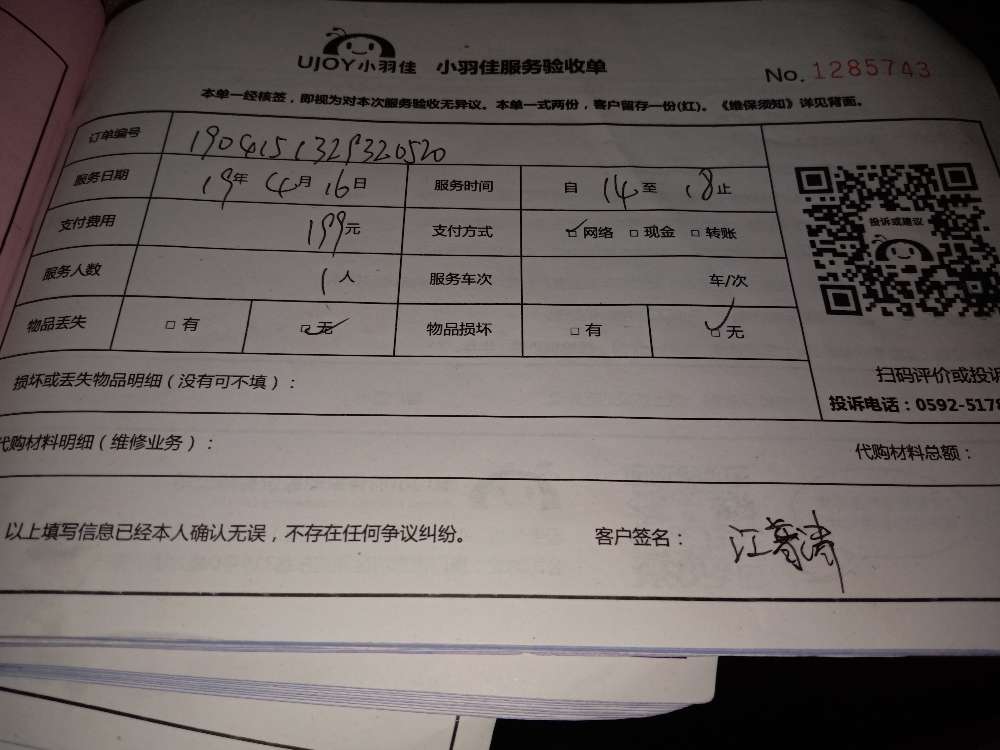 UJOY小羽佳 小羽佳服务验收单 No. 1285743
本单一经核签，即视为对本次服务验收无异议。本单一式两份，客户留存一份(红)。《维保须知》详见背面。
订单编号 190415132
服务日期 19年 4月 16日 服务时间 自 14 至 18 止
支付费用 199元 支付方式 网络 现金 转账
服务人数 1人 服务车次 车/次
物品丢失 有 无 物品损坏 有 无
投诉或建议
损坏或丢失物品明细（没有可不填）：
扫码评价或投诉
投诉电话：0592-5178
代购材料明细（维修业务）： 代购材料总额：
以上填写信息已经本人确认无误，不存在任何争议纠纷。 客户签名：